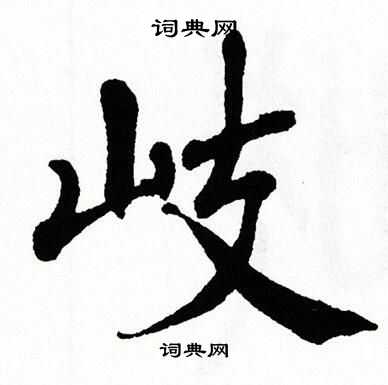 词典网
岐
词典网